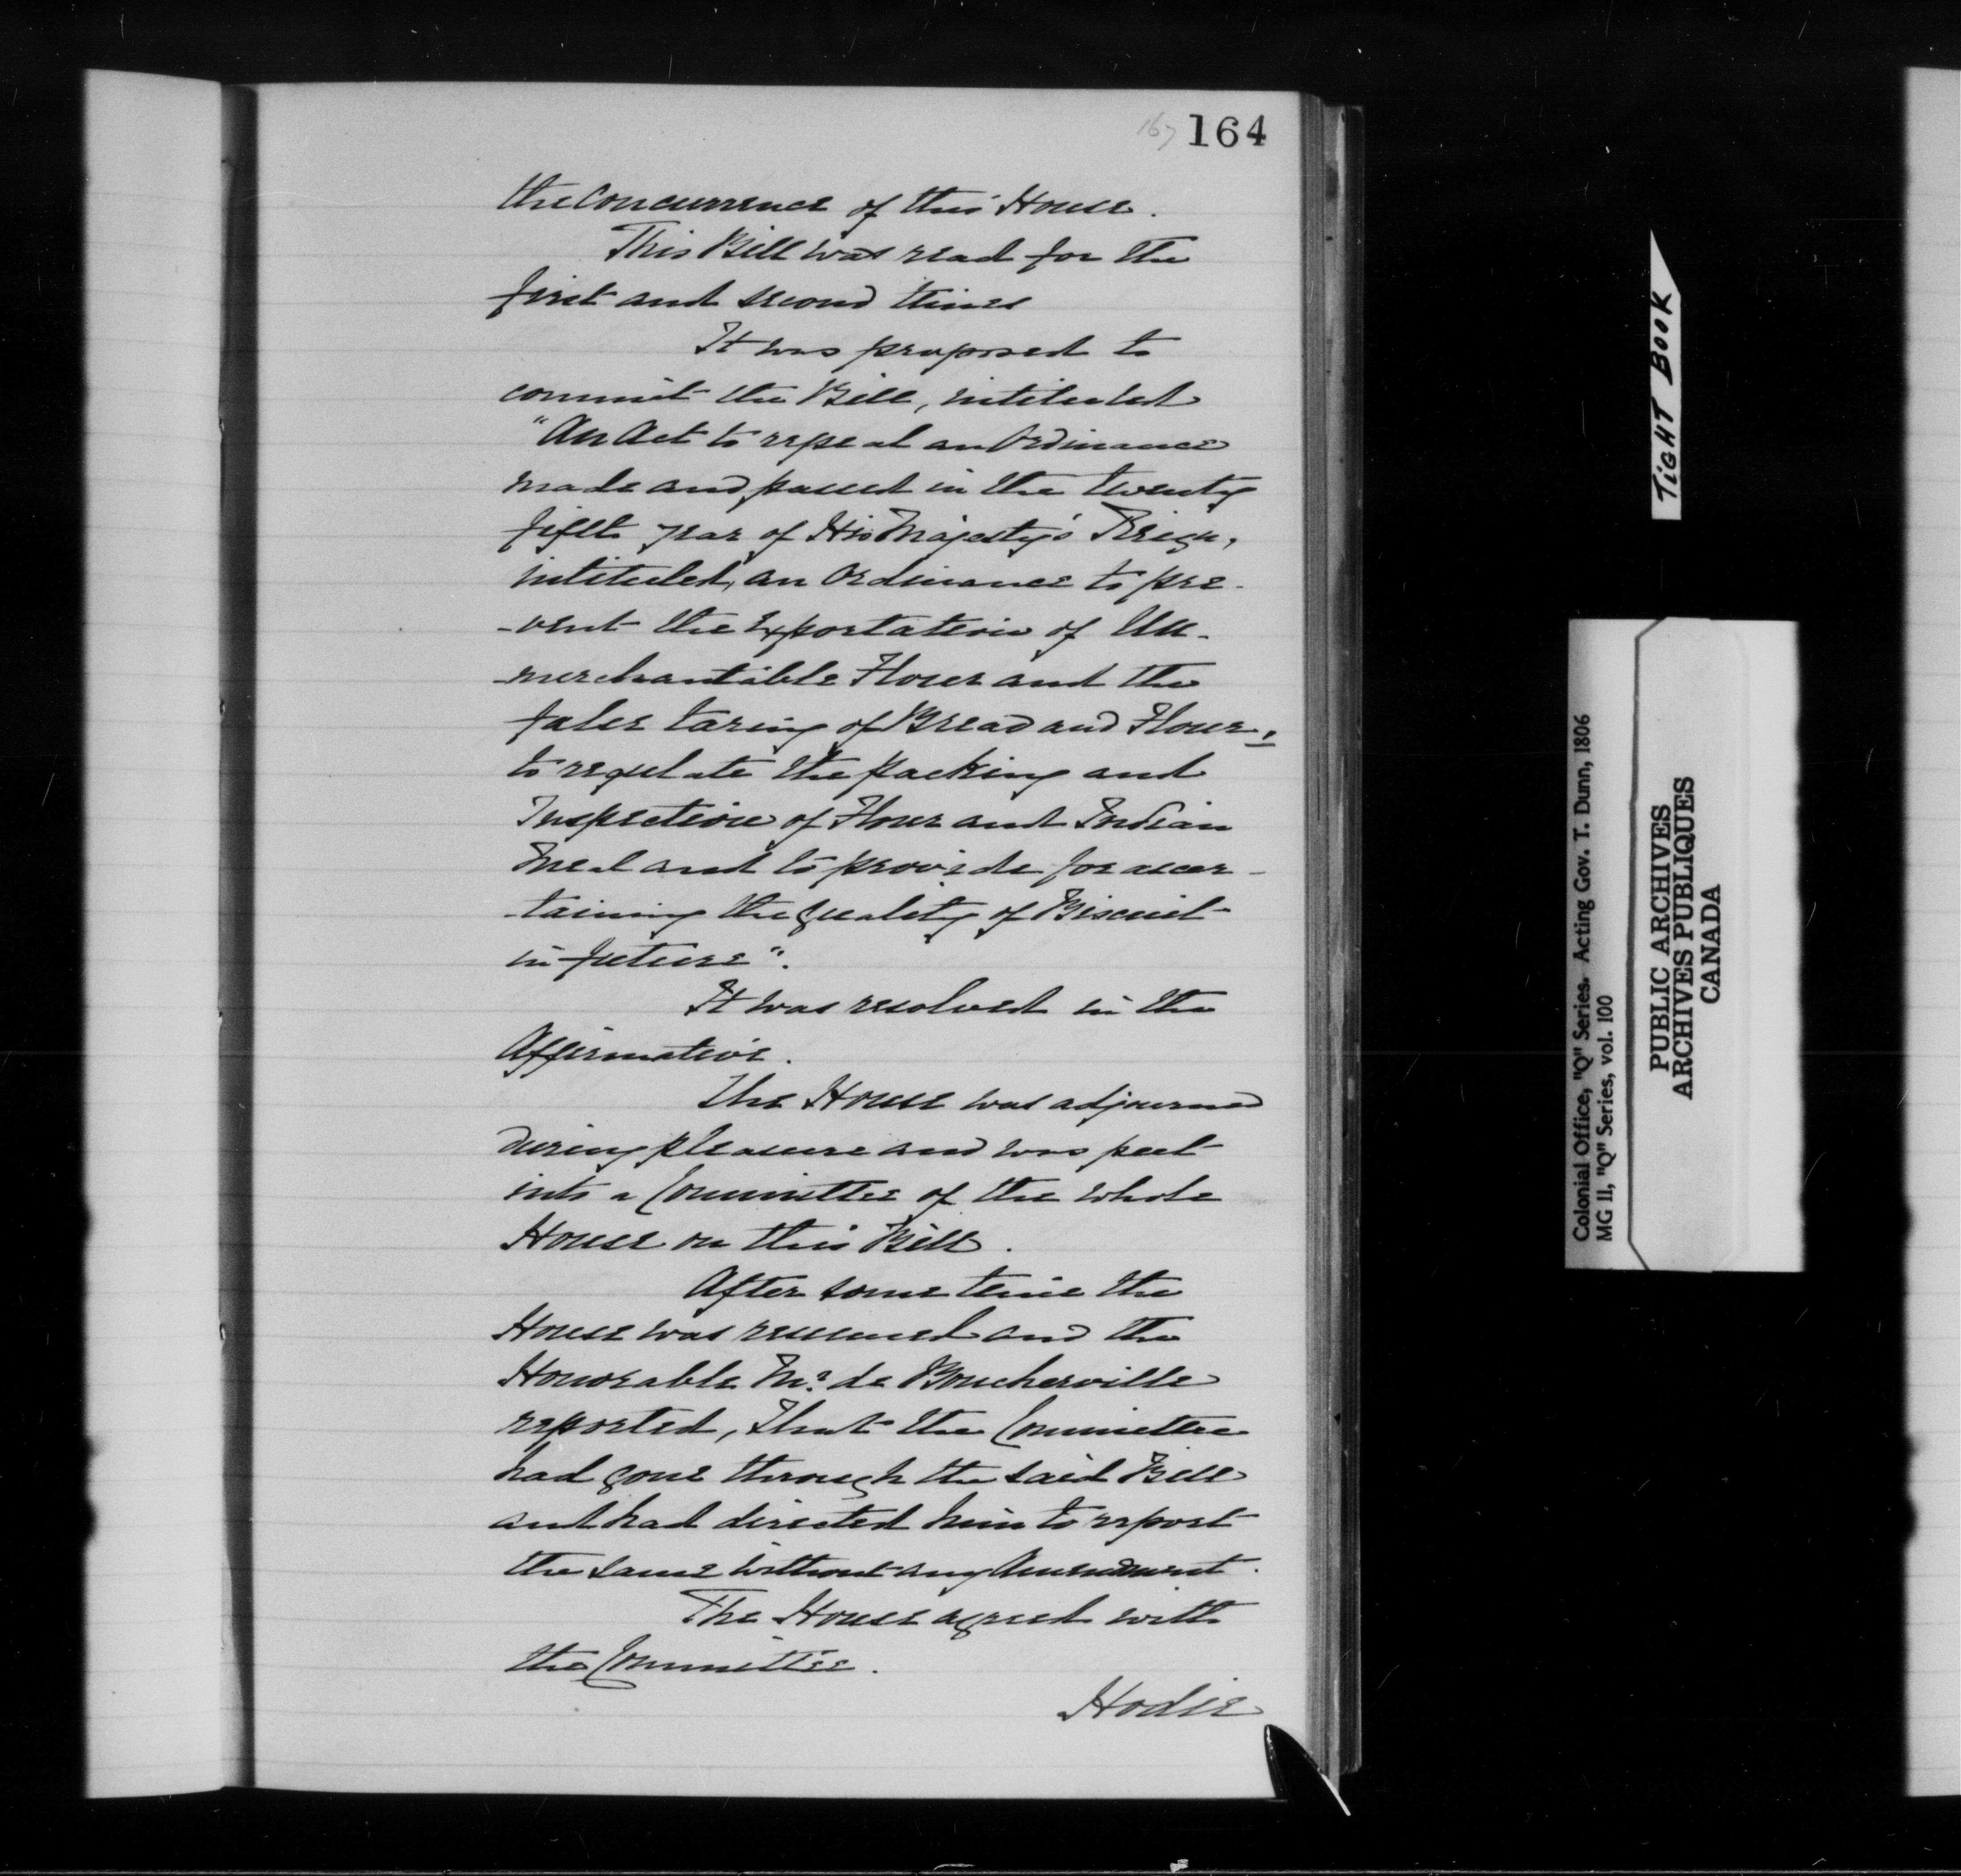 167 164
the Concurrence of this House.
This Bill was read for the
first and second times
It was proposed to
commit the Bill, intituled
"An Act to repeal an Ordinance
made and passed in the twenty
fifth year of His Majesty's Reign,
intituled, an Ordinance to pre-
-vent the Exportation of Un-
-merchantable Flour and the
false taring of Bread and Flour,
to regulate the packing and
Inspection of Flour and Indian
Meal and to provide for ascer-
-taining the quality of Biscuit
in future".
It was resolved in the
Affirmative.
The House was adjourned
during pleasure and was put
into a Committee of the whole
House on this Bill.
After some time the
House was resumed and the
Honorable Mr. de Boucherville
reported, that the Committee
had gone through the said Bill
and had directed him to report
the same without any Amendment.
The House agreed with
the Committee.
Hodie
TIGHT BOOK
Colonial Office, "Q" Series. Acting Gov. T. Dunn, 1806
MG 11, "Q" Series, vol. 100
PUBLIC ARCHIVES
ARCHIVES PUBLIQUES
CANADA